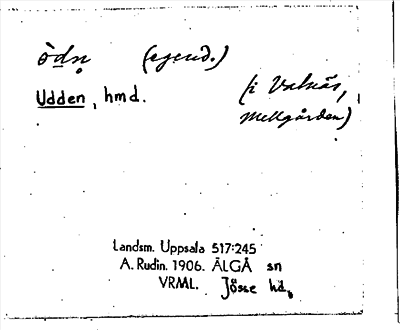 òdn̥ (egend.)
Udden, hmd. (i Valnäs,
Mellgården)
Landsm. Uppsala 517:245
A. Rudin. 1906. ÄLGÅ sn
VRML. Jösse hd.